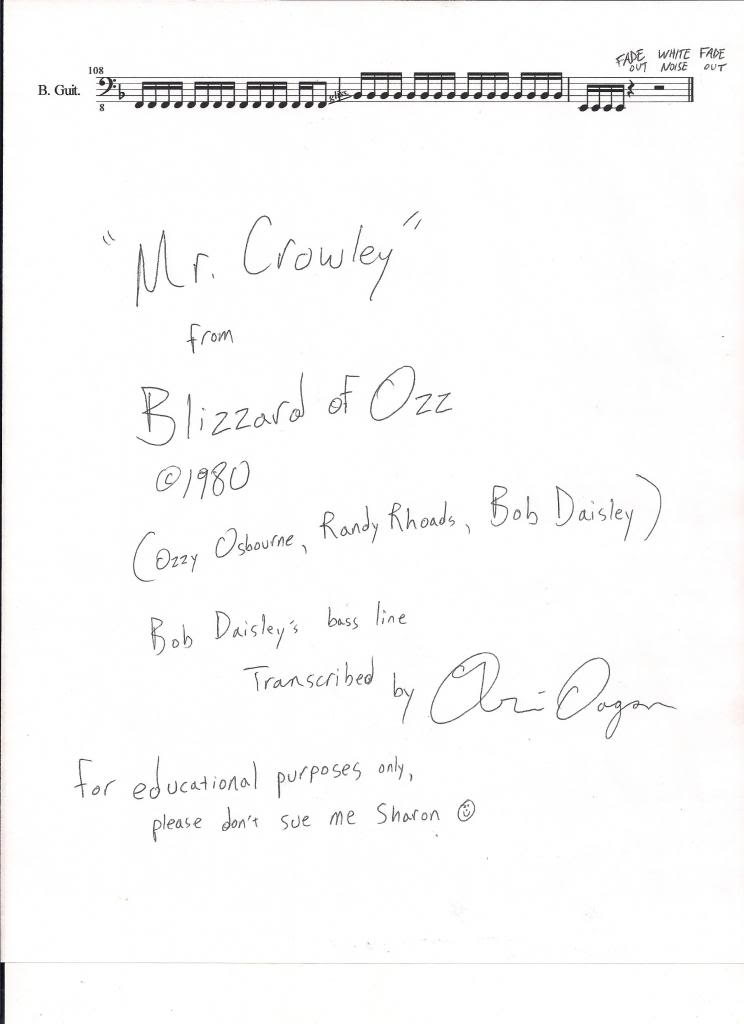 FADE WHITE FADE
OUT NOISE OUT
108
B. Guit.
8
gliss
"Mr. Crowley"
from
Blizzard of Ozz
©1980
(Ozzy Osbourne, Randy Rhoads, Bob Daisley)
Bob Daisley's bass line
Transcribed by
for educational purposes only,
please don't sue me Sharon ☺